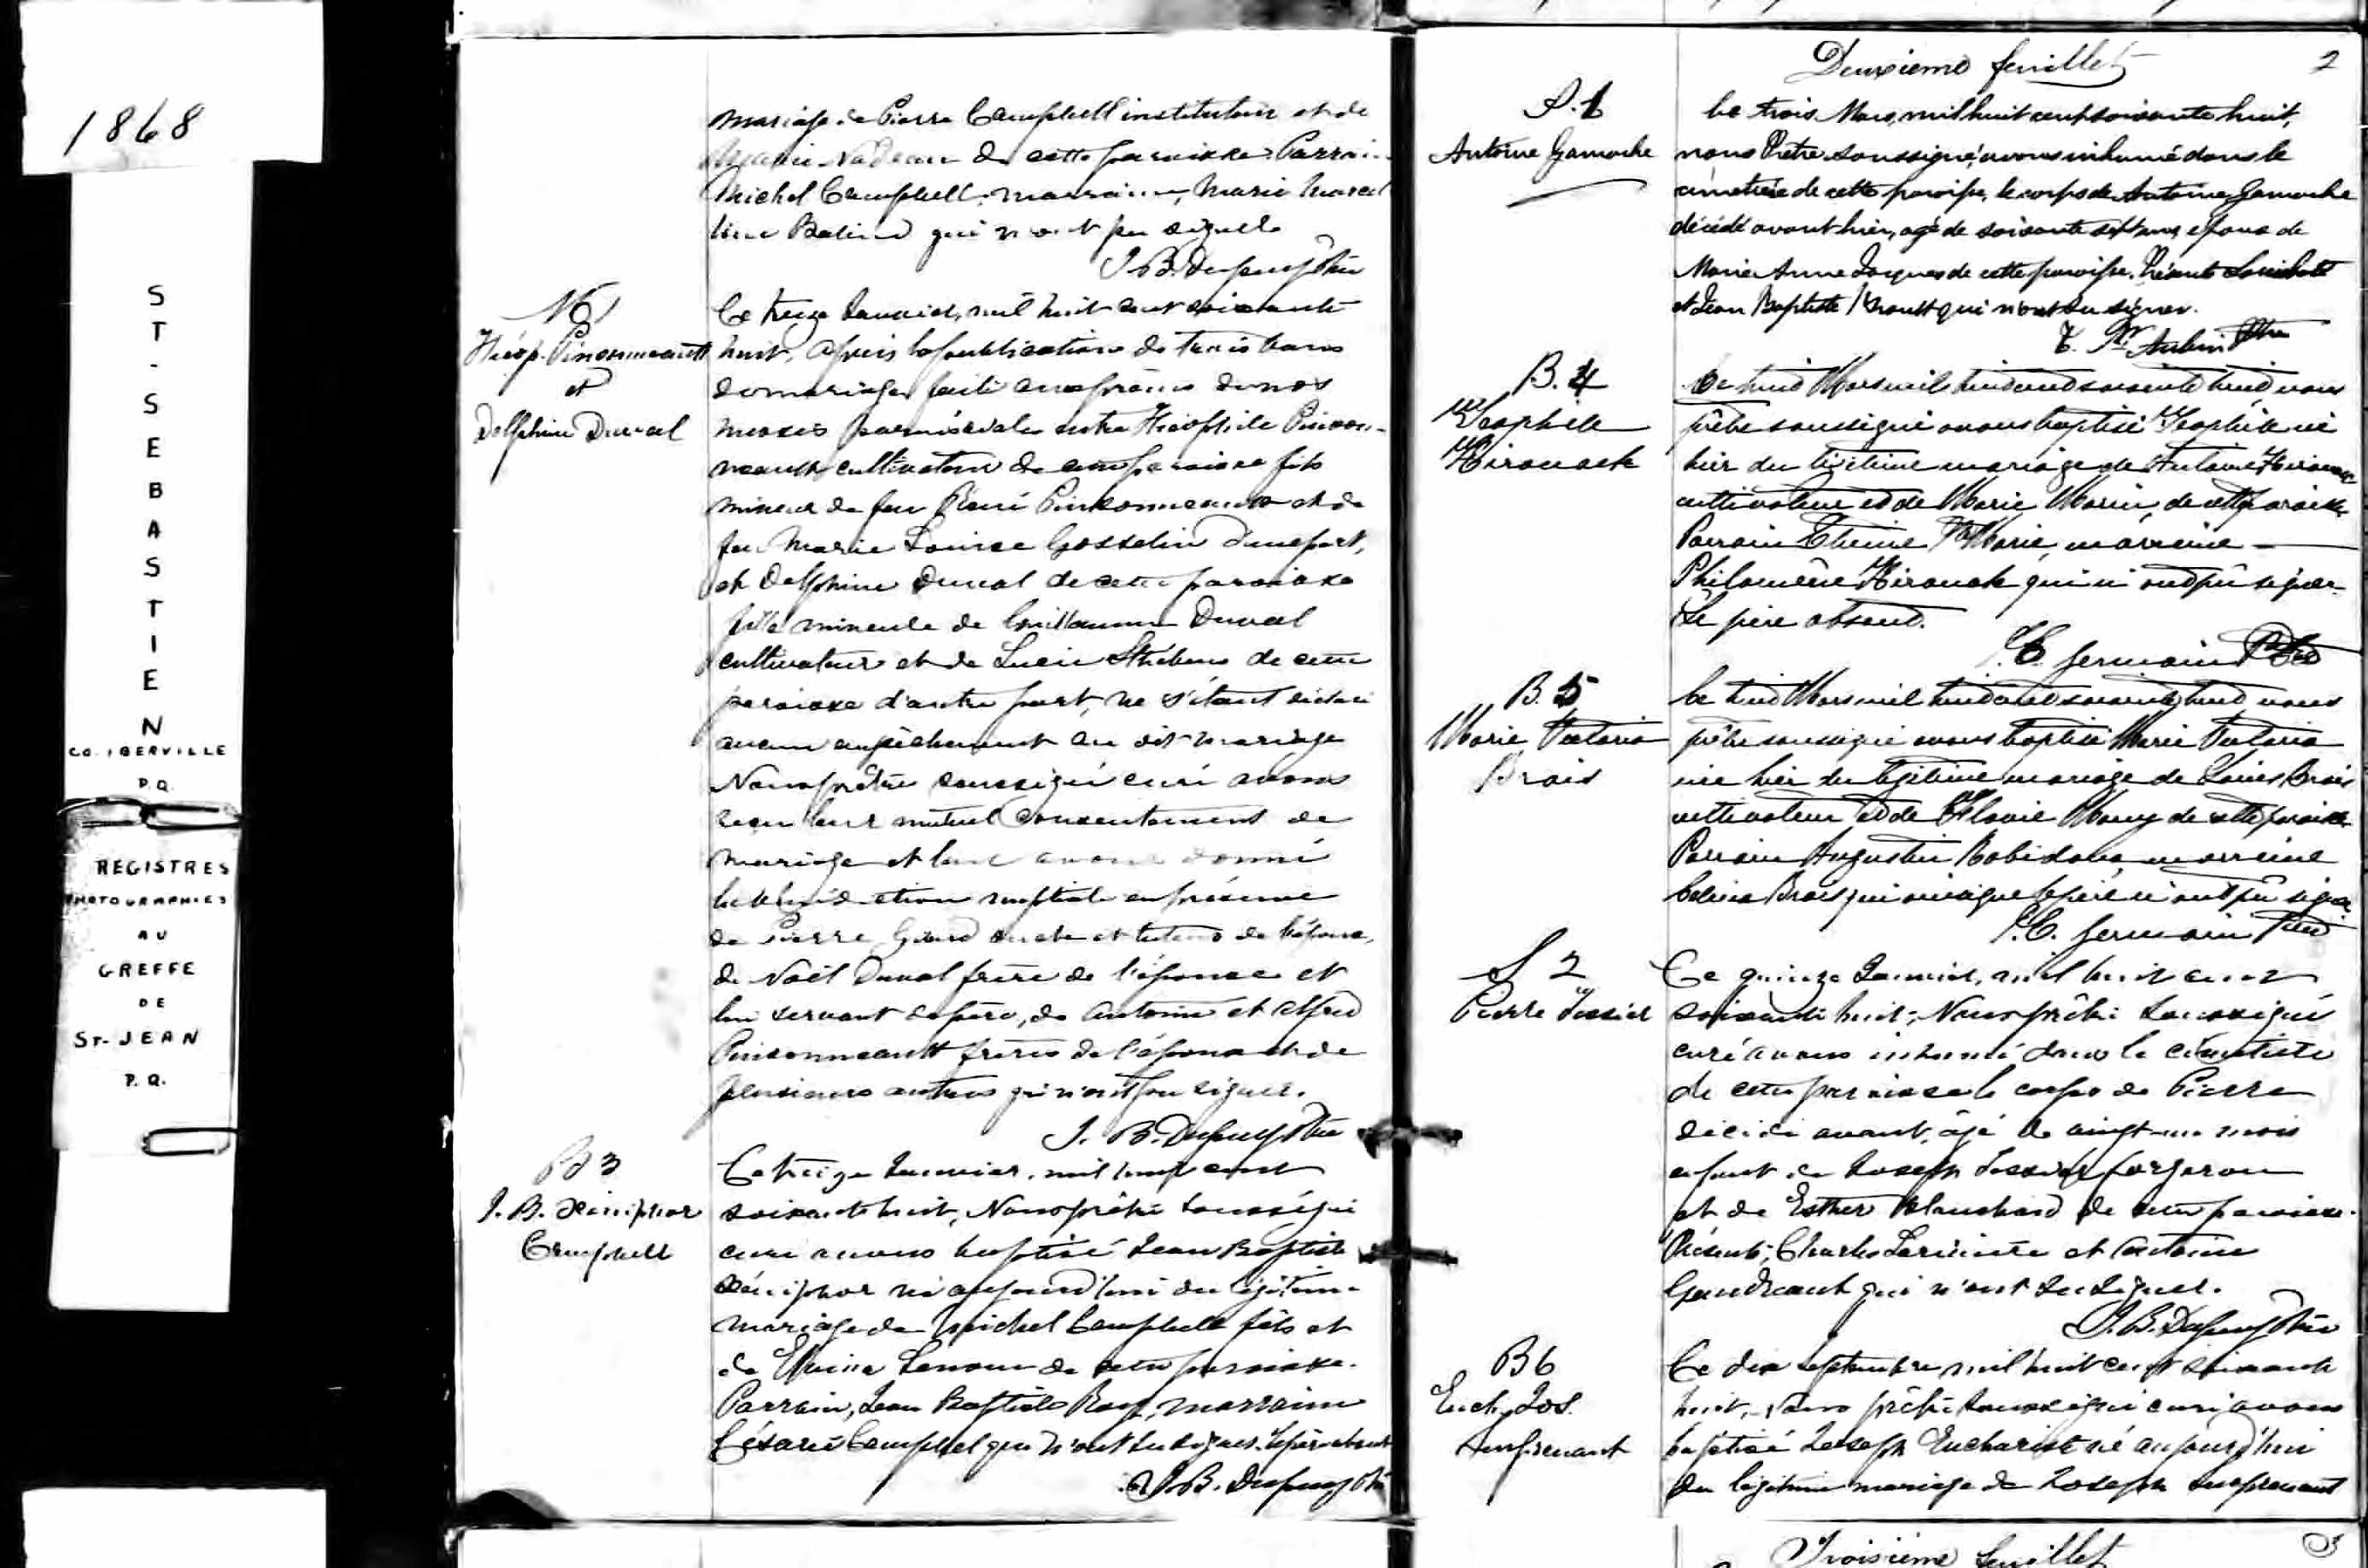 1868
ST-SEBASTIEN
CO. IBERVILLE
P.Q.
REGISTRES
PHOTOGRAPHIES
AU
GREFFE
DE
ST-JEAN
P.Q.
mariage de Pierre Campbell instituteur et de
Marie Nadeau de cette paroisse. Parrain
Michel Campbell, marraine, Marie Marcel
line qui n'ont pu signer
J. B. Dupuy Ptre
M 1
Théop. Pinsonneault
et
Delphine Duval
Ce treize Janvier, mil huit cent soixante
huit, après la publication de trois bans
de mariage faite aux prônes de nos
messes paroissiales entre Théophile Pinson-
neault cultivateur de cette paroisse fils
mineur de feu René Pinsonneault et de
feu Marie Louise Gosselin d'une part,
et Delphine Duval de cette paroisse
fille mineure de Guillaume Duval
cultivateur et de Lucie de cette
paroisse d'autre part, ne s'étant déclaré
aucun empêchement au dit mariage
Nous prêtre soussigné curé avons
reçu leur mutuel consentement de
mariage et leur avons donné
la bénédiction nuptiale en présence
de Pierre oncle et tuteur de l'époux,
de Noël Duval frère de l'épouse et
lui servant de père, de Antoine et Alfred
Pinsonneault frères de l'époux et de
plusieurs autres qui n'ont pu signer.
J. B. Dupuy Ptre
B 3
J. B.
Campbell
Ce treize Janvier, mil huit cent
soixante huit, Nous prêtre soussigné
curé avons baptisé Jean Baptiste
né aujourd'hui du légitime
mariage de Michel Campbell fils et
de de cette paroisse.
Parrain, Jean Baptiste Roy, marraine
Césarie Campbell qui n'ont su signer. Le père absent
J. B. Dupuy Ptre
Deuxième feuillet
2
S. 1
Antoine Gamache
Le trois Mars, mil huit cent soixante huit,
nous Prêtre soussigné, avons inhumé dans le
cimetière de cette paroisse, le corps de Antoine Gamache
décédé avant hier, agé de soixante sept ans, époux de
Marie Anne Jacques de cette paroisse. Présents
et Jean Baptiste qui n'ont su signer.
St. Aubin Ptre
B. 4
Théophile
Kirouack
Le huit Mars mil huit cent soixante huit nous
prêtre soussigné avons baptisé Théophile né
hier du légitime mariage de Antoine Kirouac
cultivateur et de Marie Morin, de cette paroisse
Parrain Etienne Marie, marraine
Philomène Kirouack qui n'ont pû signer
Le père absent.
Germain Ptre
B. 5
Marie Victoria
Brais
Le huit Mars mil huit cent soixante huit nous
prêtre soussigné avons baptisé Marie Victoria
née hier du légitime mariage de Louis Brais
cultivateur et de Flavie de cette paroisse
Parrain Augustin Robidoux marraine
Brais qui ainsi que le père n'ont pû signer
Germain Ptre
S 2
Pierre Tessier
Ce quinze Janvier, mil huit cent
soixante huit, Nous prêtre soussigné
curé avons inhumé dans le cimetière
de cette paroisse le corps de Pierre
décédé avant, âgé de vingt-un mois
enfant de Joseph Tessier forgeron
et de Esther Blanchard de cette paroisse.
Présents, Charles Larivière et Antoine
Gaudreault qui n'ont su signer.
J. B. Dupuy Ptre
B 6
Euch. Jos.
Surprenant
Ce dix septembre mil huit cent soixante
huit, Nous prêtre soussigné curé avons
baptisé Joseph Euchariste né aujourd'hui
du légitime mariage de Joseph Surprenant
Troisième feuillet
3